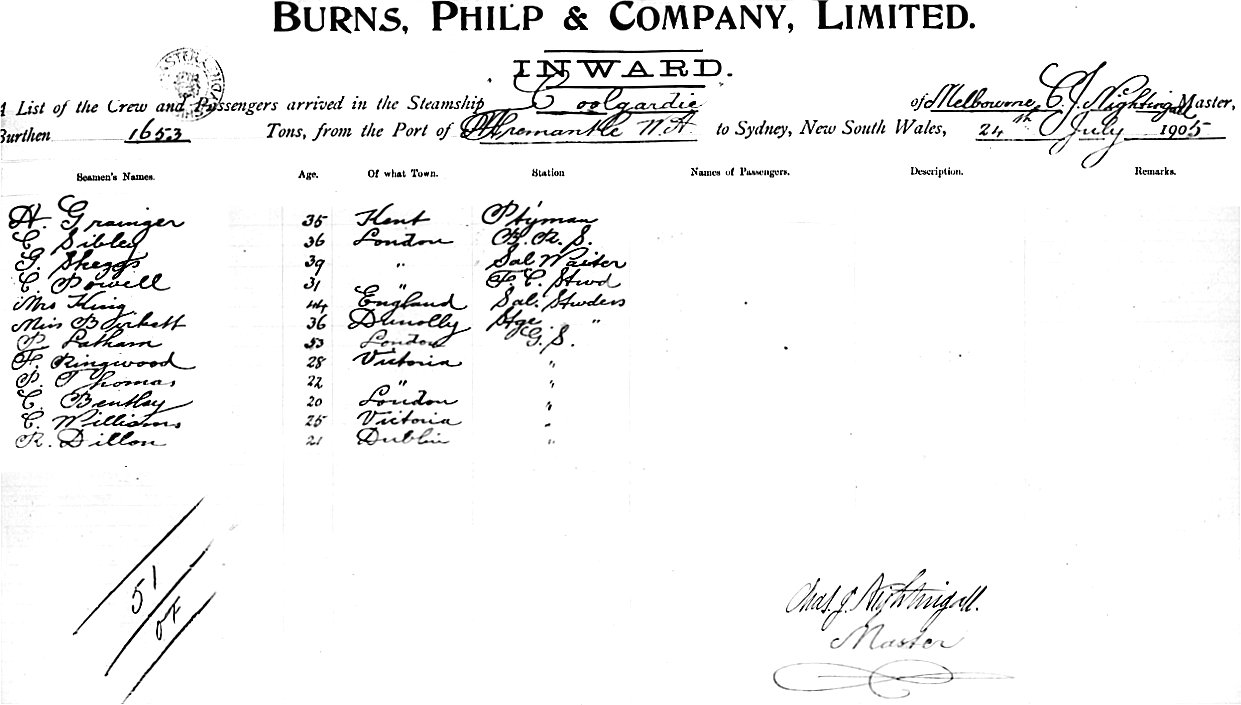 BURNS, PHILP & COMPANY, LIMITED.
INWARD.
A List of the Crew and Passengers arrived in the Steamship Coolgardie of Melbourne C J Nightingall Master,
Burthen 1653 Tons, from the Port of Fremantle W.A. to Sydney, New South Wales, 24th July 1905
Seamen's Names. Age. Of what Town. Station Names of Passengers. Description. Remarks.
H. Grainger 35 Kent Ptyman
C. Sibley 36 London B. R. S.
G. Skeggs 39 " Sal Waiter
C. Powell 31 " F. C. Stwd
Mrs King 44 England Sal. Stwdess
Miss Birkett 36 Dunolly Stge "
P. Latham 53 London G. S.
F. Ringwood 28 Victoria "
P. Thomas 22 " "
C. Bentley 20 London "
C. Williams 25 Victoria "
R. Dillon 21 Dublin "
51
Chas. J. Nightingall.
Master